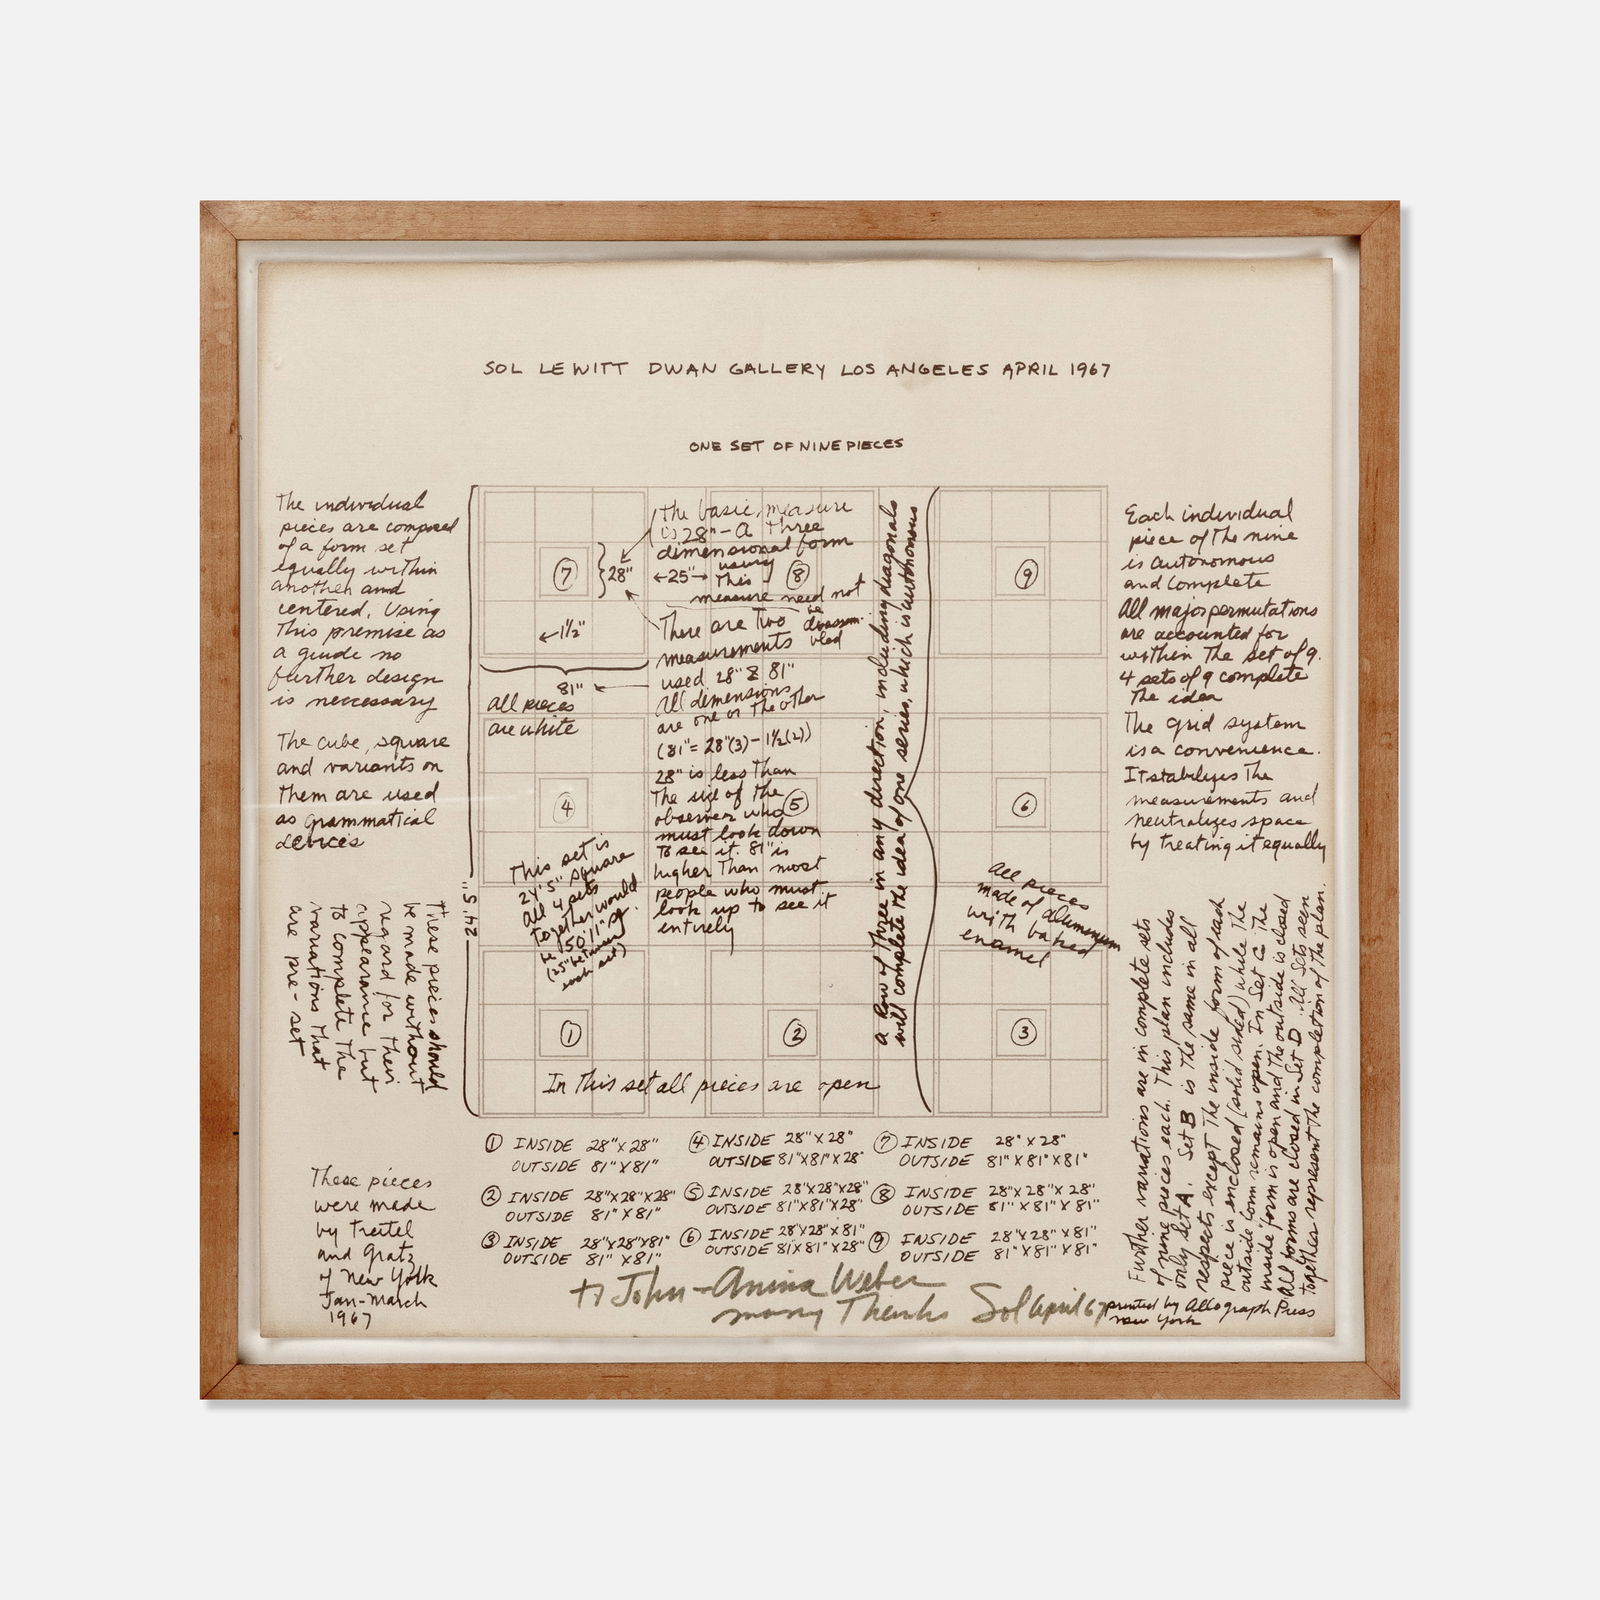 SOL LEWITT DWAN GALLERY LOS ANGELES APRIL 1967
ONE SET OF NINE PIECES
The individual
pieces are composed
of a form set
equally within
another and
centered. Using
this premise as
a guide no
further design
is neccessary
The cube, square
and variants on
them are used
as grammatical
devices
These pieces should
be made without
regard for their
appearance but
to complete the
variations that
are pre-set
These pieces
were made
by Treitel
and Gratz
of New York
Jan-March
1967
24'5"
7
28"
←1½"
81"
all pieces
are white
4
This set is
24'5" square
All 4 sets
together would
be 50'11" sq.
(25" between
each set)
1
The basic measure
is 28" - a three
dimensional form
using
←25"→ this 8
measure need not
be
disassembled
There are two
measurements
used 28" & 81"
All dimensions
are one or the other
(81" = 28"(3) - 1½(2))
28" is less than
the size of the
observer who 5
must look down
to see it. 81" is
higher than most
people who must
look up to see it
entirely
2
In this set all pieces are open
a row of three in any direction, including diagonals
will complete the idea of one series, which is autonomous
9
6
all pieces
made of aluminum
with baked
enamel
3
Each individual
piece of the nine
is autonomous
and complete
All major permutations
are accounted for
within the set of 9.
4 sets of 9 complete
the idea
The grid system
is a convenience.
It stabilizes the
measurements and
neutralizes space
by treating it equally
Further variations are in complete sets
of nine pieces each. This plan includes
only set A. Set B is the same in all
respects except the inside form of each
piece is enclosed (solid sided) while the
outside form remains open. In Set C the
inside form is open and the outside is closed
All forms are closed in Set D. All sets seen
together represent the completion of the plan.
1 INSIDE 28"X28"
OUTSIDE 81"X81"
2 INSIDE 28"X28"X28"
OUTSIDE 81"X81"
3 INSIDE 28"X28"X81"
OUTSIDE 81"X81"
4 INSIDE 28"X28"
OUTSIDE 81"X81"X28"
5 INSIDE 28"X28"X28"
OUTSIDE 81"X81"X28"
6 INSIDE 28"X28"X81"
OUTSIDE 81"X81"X28"
7 INSIDE 28"X28"
OUTSIDE 81"X81"X81"
8 INSIDE 28"X28"X28"
OUTSIDE 81"X81"X81"
9 INSIDE 28"X28"X81"
OUTSIDE 81"X81"X81"
to John-Anina Weber
many Thanks Sol April 67
printed by Allograph Press
New York